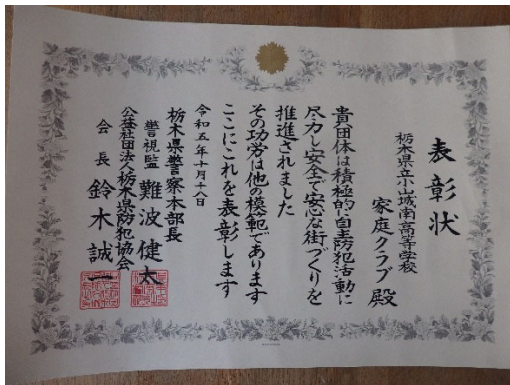 表彰状
栃木県立小山城南高等学校
家庭クラブ 殿
貴団体は積極的に自主防犯活動に
尽力し安全で安心な街づくりを
推進されました
その功労は他の模範であります
ここにこれを表彰します
令和五年十月十八日
栃木県警察本部長
警視監 難波健太
公益社団法人栃木県防犯協会
会長 鈴木誠一